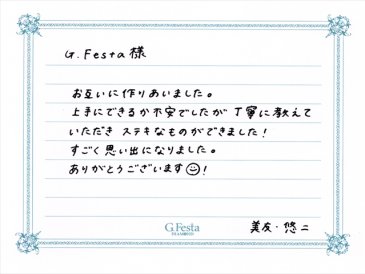 G.Festa様
お互いに作りあいました。
上手にできるか不安でしたが丁寧に教えて
いただきステキなものができました!
すごく思い出になりました。
ありがとうございます☺!
G.Festa
DIAMOND
美友・悠二